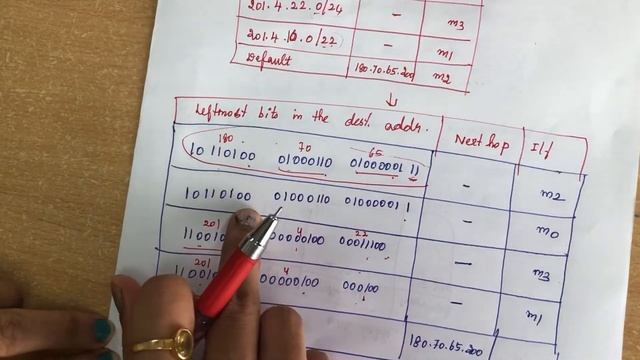 201.4.22.0/24 - m3
201.4.16.0/22 - m1
Default 180.70.65.200 m2
Leftmost bits in the dest. addr. Next hop I/f
180 70 65
10110100 01000110 01000001 11 - m2
10110100 01000110 01000001 1 - m0
201 4 22
00000100 00011100 - m3
201 4
00000100 000100 - m1
180.70.65.200